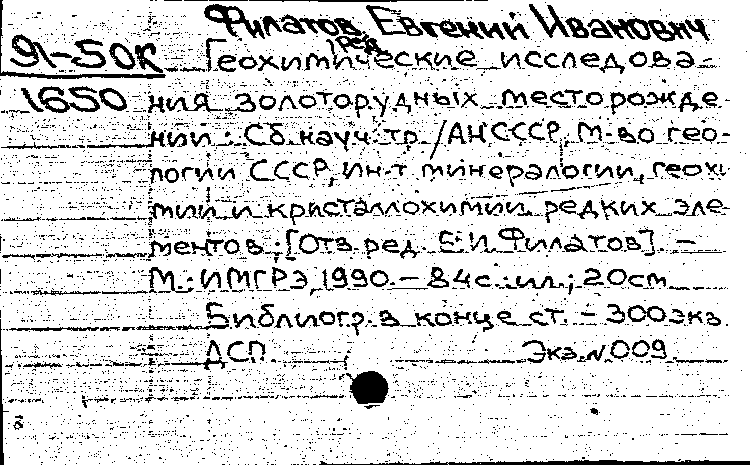 Филатов, Евгений Иванович
ред.
91-50К Геохимические исследова-
1650 ния золоторудных месторожде-
ний : Сб. науч. тр. / АН СССР, М-во гео-
логии СССР, Ин-т минералогии, геохи-
мии и кристаллохимии редких эле-
ментов ; [Отв. ред. Е. И. Филатов]. -
М. : ИМГРЭ, 1990. - 84 с. : ил. ; 20 см
Библиогр. в конце ст. - 300 экз.
ДСП. Экз. N 009.